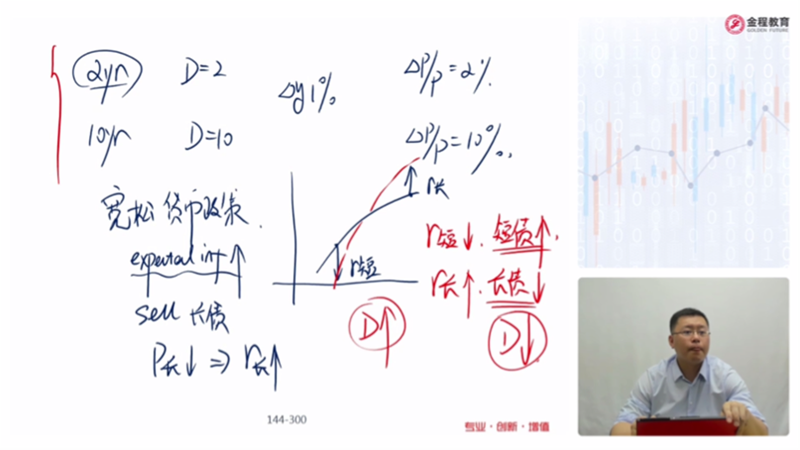 金程教育
GOLDEN FUTURE
2yr D=2 ΔP/P=2%
Δy1%
10yr D=10 ΔP/P=10%
宽松货币政策 r长
r短↓ 短债↑
r短
r长↑ 长债↓
sell 长债
D↑ D↓
P长↓ ⇒ r长↑
144-300
专业·创新·增值